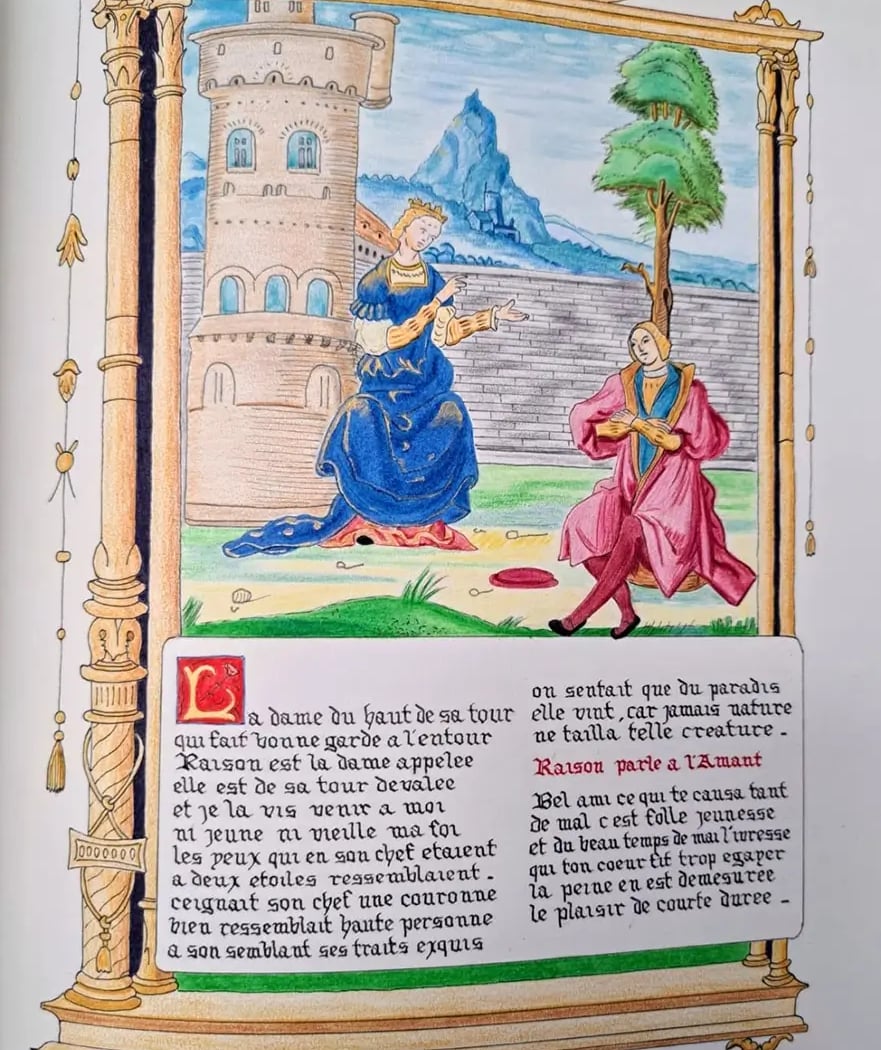 La dame du haut de sa tour
qui fait bonne garde a l'entour
Raison est la dame appelee
elle est de sa tour devalee
et je la vis venir a moi
ni jeune ni vieille ma foi
les yeux qui en son chef etaient
a deux etoiles ressemblaient.
ceignait son chef une couronne
bien ressemblait haute personne
a son semblant ses traits exquis
on sentait que du paradis
elle vint, car jamais nature
ne tailla telle creature.
Raison parle a l'Amant
Bel ami ce qui te causa tant
de mal c est folle jeunesse
et du beau temps de mai l'ivresse
qui ton coeur fit trop egayer
la peine en est demesuree
le plaisir de courte duree.